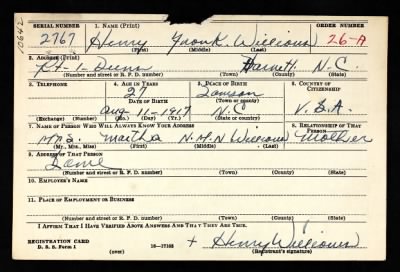 10642
SERIAL NUMBER 1. NAME (Print) ORDER NUMBER
2767 Henry Frank Williams 26-A
(First) (Middle) (Last)
2. ADDRESS (Print)
Rt-1-Dunn Harnett N.C.
(Number and street or R. F. D. number) (Town) (County) (State)
3. TELEPHONE 4. AGE IN YEARS 5. PLACE OF BIRTH 6. COUNTRY OF CITIZENSHIP
27
(Town or county)
DATE OF BIRTH
Aug-11-1917 N.C U.S.A.
(Exchange) (Number) (Mo.) (Day) (Yr.) (State or country)
7. NAME OF PERSON WHO WILL ALWAYS KNOW YOUR ADDRESS 8. RELATIONSHIP OF THAT PERSON
Mrs. Martha N.M.N Williams Mother
(Mr., Mrs., Miss) (First) (Middle) (Last)
9. ADDRESS OF THAT PERSON
Same
(Number and street or R. F. D. number) (Town) (County) (State)
10. EMPLOYER'S NAME
11. PLACE OF EMPLOYMENT OR BUSINESS
(Number and street or R. F. D. number) (Town) (County) (State)
I AFFIRM THAT I HAVE VERIFIED ABOVE ANSWERS AND THAT THEY ARE TRUE.
REGISTRATION CARD
D. S. S. Form 1 (over) 16-17105 + Henry Williams
(Registrant's signature)